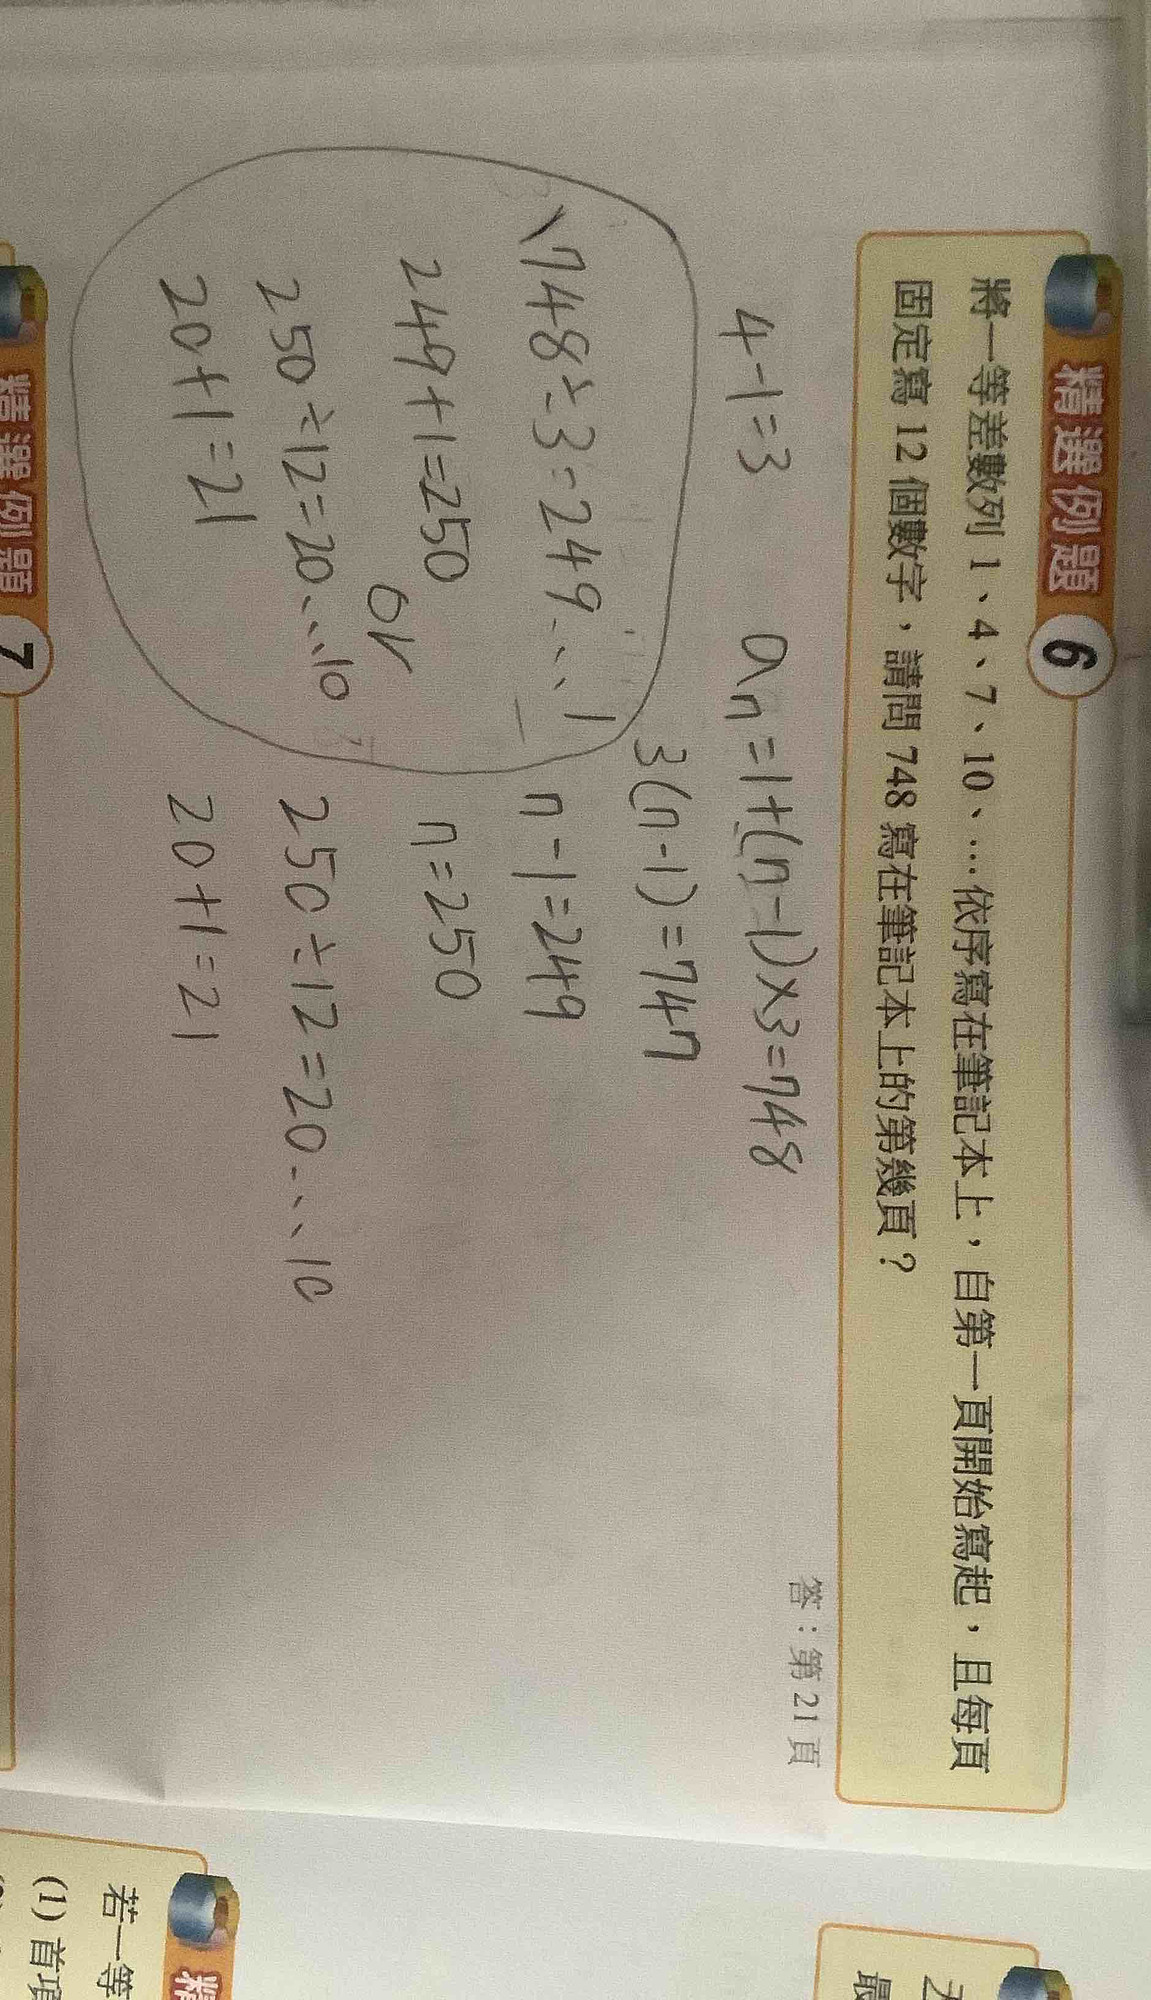 精選例題 6
將一等差數列 1、4、7、10、…依序寫在筆記本上，自第一頁開始寫起，且每頁
固定寫 12 個數字，請問 748 寫在筆記本上的第幾頁？
答：第 21 頁
4-1=3
an=1+(n-1)×3=748
3(n-1)=747
n-1=249
n=250
250÷12=20…10
20+1=21
748÷3=249…1
249+1=250
ok
250÷12=20…10
20+1=21
精選例題 7
若一等
(1) 首項
精
最